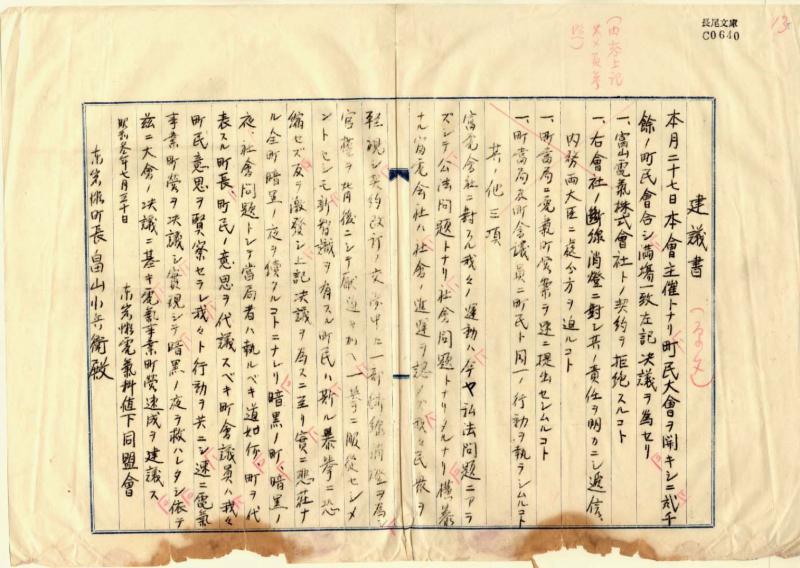 長尾文庫
C0640
13
建議書
本月二十七日本會主催トナリ町民大會ヲ開キシニ貳千
餘ノ町民會合シ満場一致左記決議ヲ為セリ
一、富山電氣株式會社トノ契約ヲ拒絶スルコト
一、右會社ノ断線消燈ニ對シ其ノ責任ヲ明カニシ逓信、
内務両大臣ニ處分方ヲ迫ルコト
一、町當局ニ電氣町営案ヲ速ニ提出セシムルコト
一、町當局及町會議員ニ町民ト同一ノ行動ヲ執ラシムルコト
其ノ他三項
富電會社ニ對スル我々ノ運動ハ今ヤ私法問題ニアラ
ズシテ公法問題トナリ社會問題トナリタルナリ横暴
ナル富電会社ハ社會ノ進運ヲ認メズ我々民衆ヲ
軽視シ契約改訂ノ交渉中ニ一部断線消燈ヲ為シ
官權ヲ背後ニシテ壓迫ヲ加ヘ一挙ニ服從セシメ
ントセシモ新智識ヲ有スル町民ハ斯ル暴挙ニ恐
縮セズ反ヲ激發シ上記決議ヲ為スニ至リ實ニ悲荘ナ
ル全町暗黒ノ夜ヲ續クルコトニナレリ暗黒ノ町、暗黒ノ
夜、社會問題トシテ當局者ハ執ルベキ道如何町ヲ代
表スル町長、町民ノ意思ヲ代議スベキ町會議員ハ我々
町民意思ヲ賢察セラレ我々ト行動ヲ共ニシ速ニ電氣
事業町営ヲ決議シ實現シテ暗黒ノ夜ヲ救ハレタシ依テ
茲ニ大會ノ決議ニ基キ電氣事業町営速成ヲ建議ス
昭和参年七月三十日
東岩瀬電氣料値下同盟會
東岩瀬町長畠山小兵衛殿